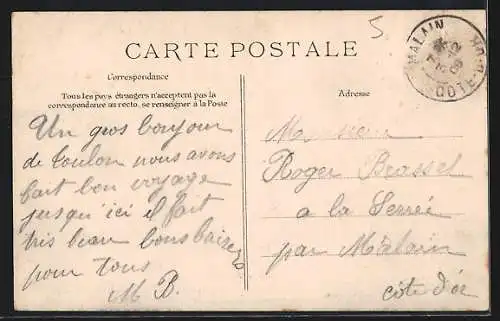 5
MALAIN
CÔTE-D'OR
CARTE POSTALE
Correspondance
Tous les pays étrangers n'acceptent pas la
correspondance au recto, se renseigner à la Poste
Adresse
Un gros bonjour
de Toulon nous avons
fait bon voyage
jusqu'ici il fait
très beau bons baisers
pour tous
M B.
Monsieur
Roger Brasset
a la Serrée
par Mâlain
côte d'or